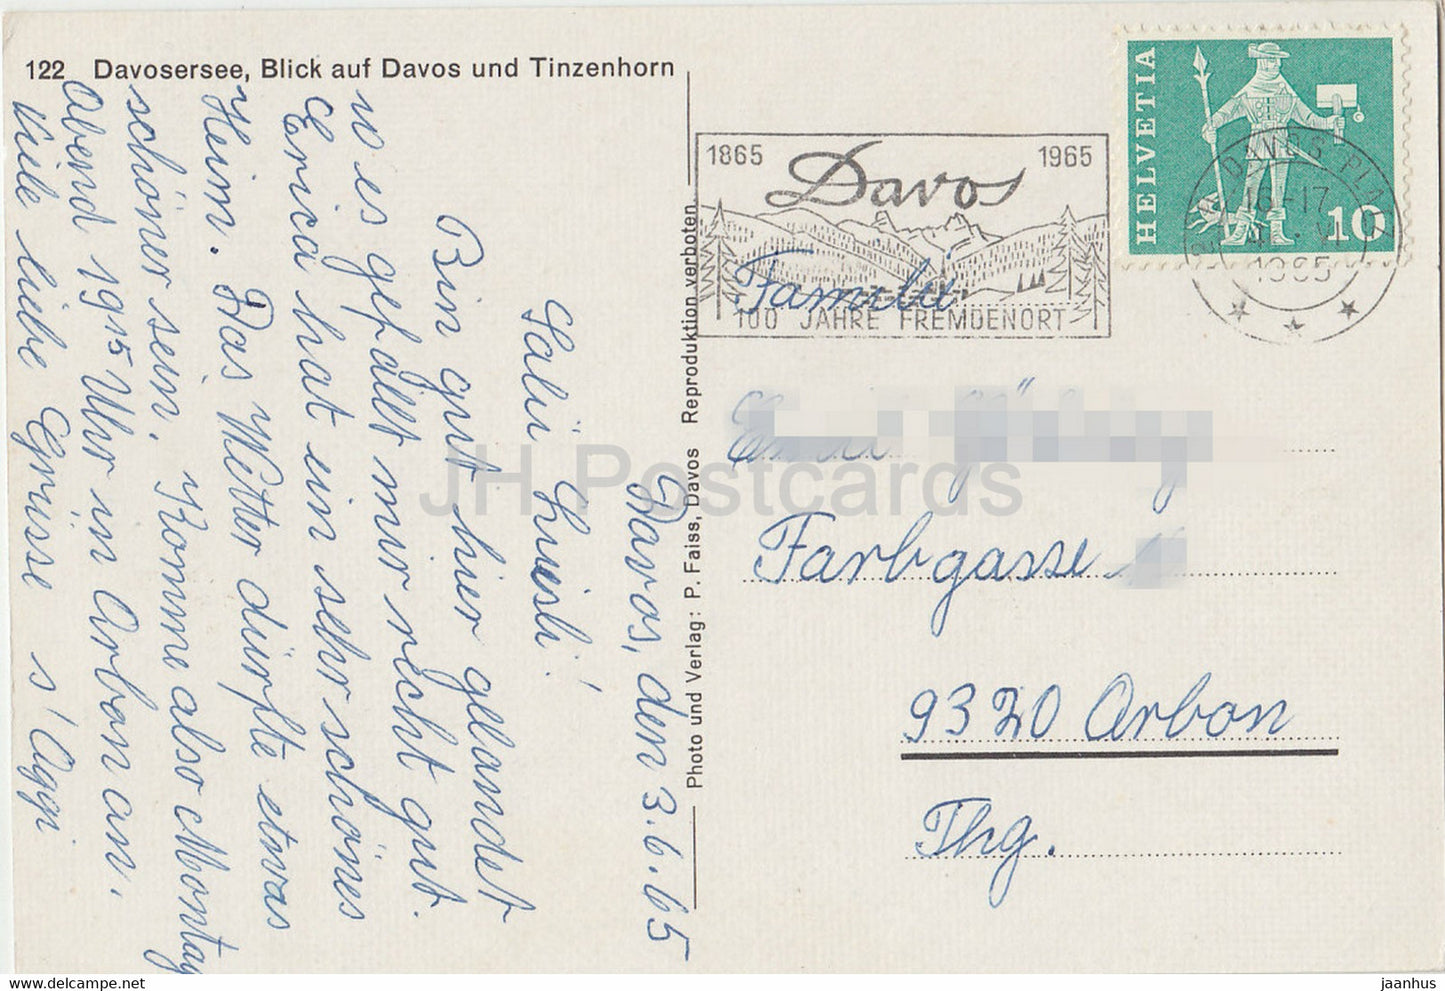 122 Davosersee, Blick auf Davos und Tinzenhorn
Davos, den 3.6.65
Salü Luesli!
Bin gut hier gelandet
w es gefällt mir recht gut.
Erica hat ein sehr schönes
Heim. Das Wetter dürfte etwas
schöner sein. Komme also Montag
Abend 19¹⁵ Uhr in Arbon an.
Viele liebe Grüsse s'Aggi
Photo und Verlag: P. Faiss, Davos Reproduktion verboten
1865 Davos 1965
100 JAHRE FREMDENORT
HELVETIA
10
DAVOS PLATZ
16-17
VI
1965
Familie
Farbgasse
9320 Arbon
Thg.
JH Postcards
www.delcampe.net
jaanhus